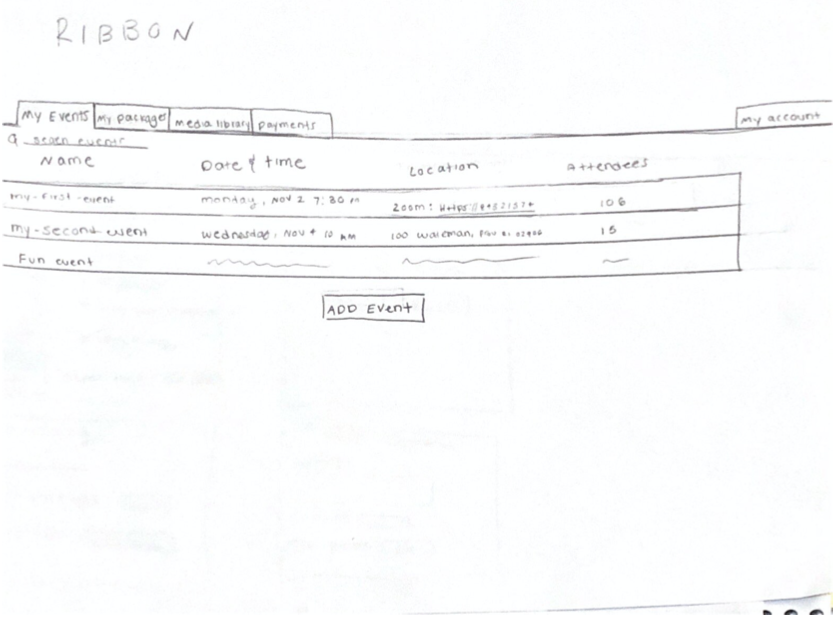 RIBBON
My Events My packages media library payments My account
Name Date & time Location Attendees
my-first-event monday, Nov 2 7:30 PM Zoom: 106
my-second event wednesday, Nov 4 10 AM 100 15
Fun event
ADD Event